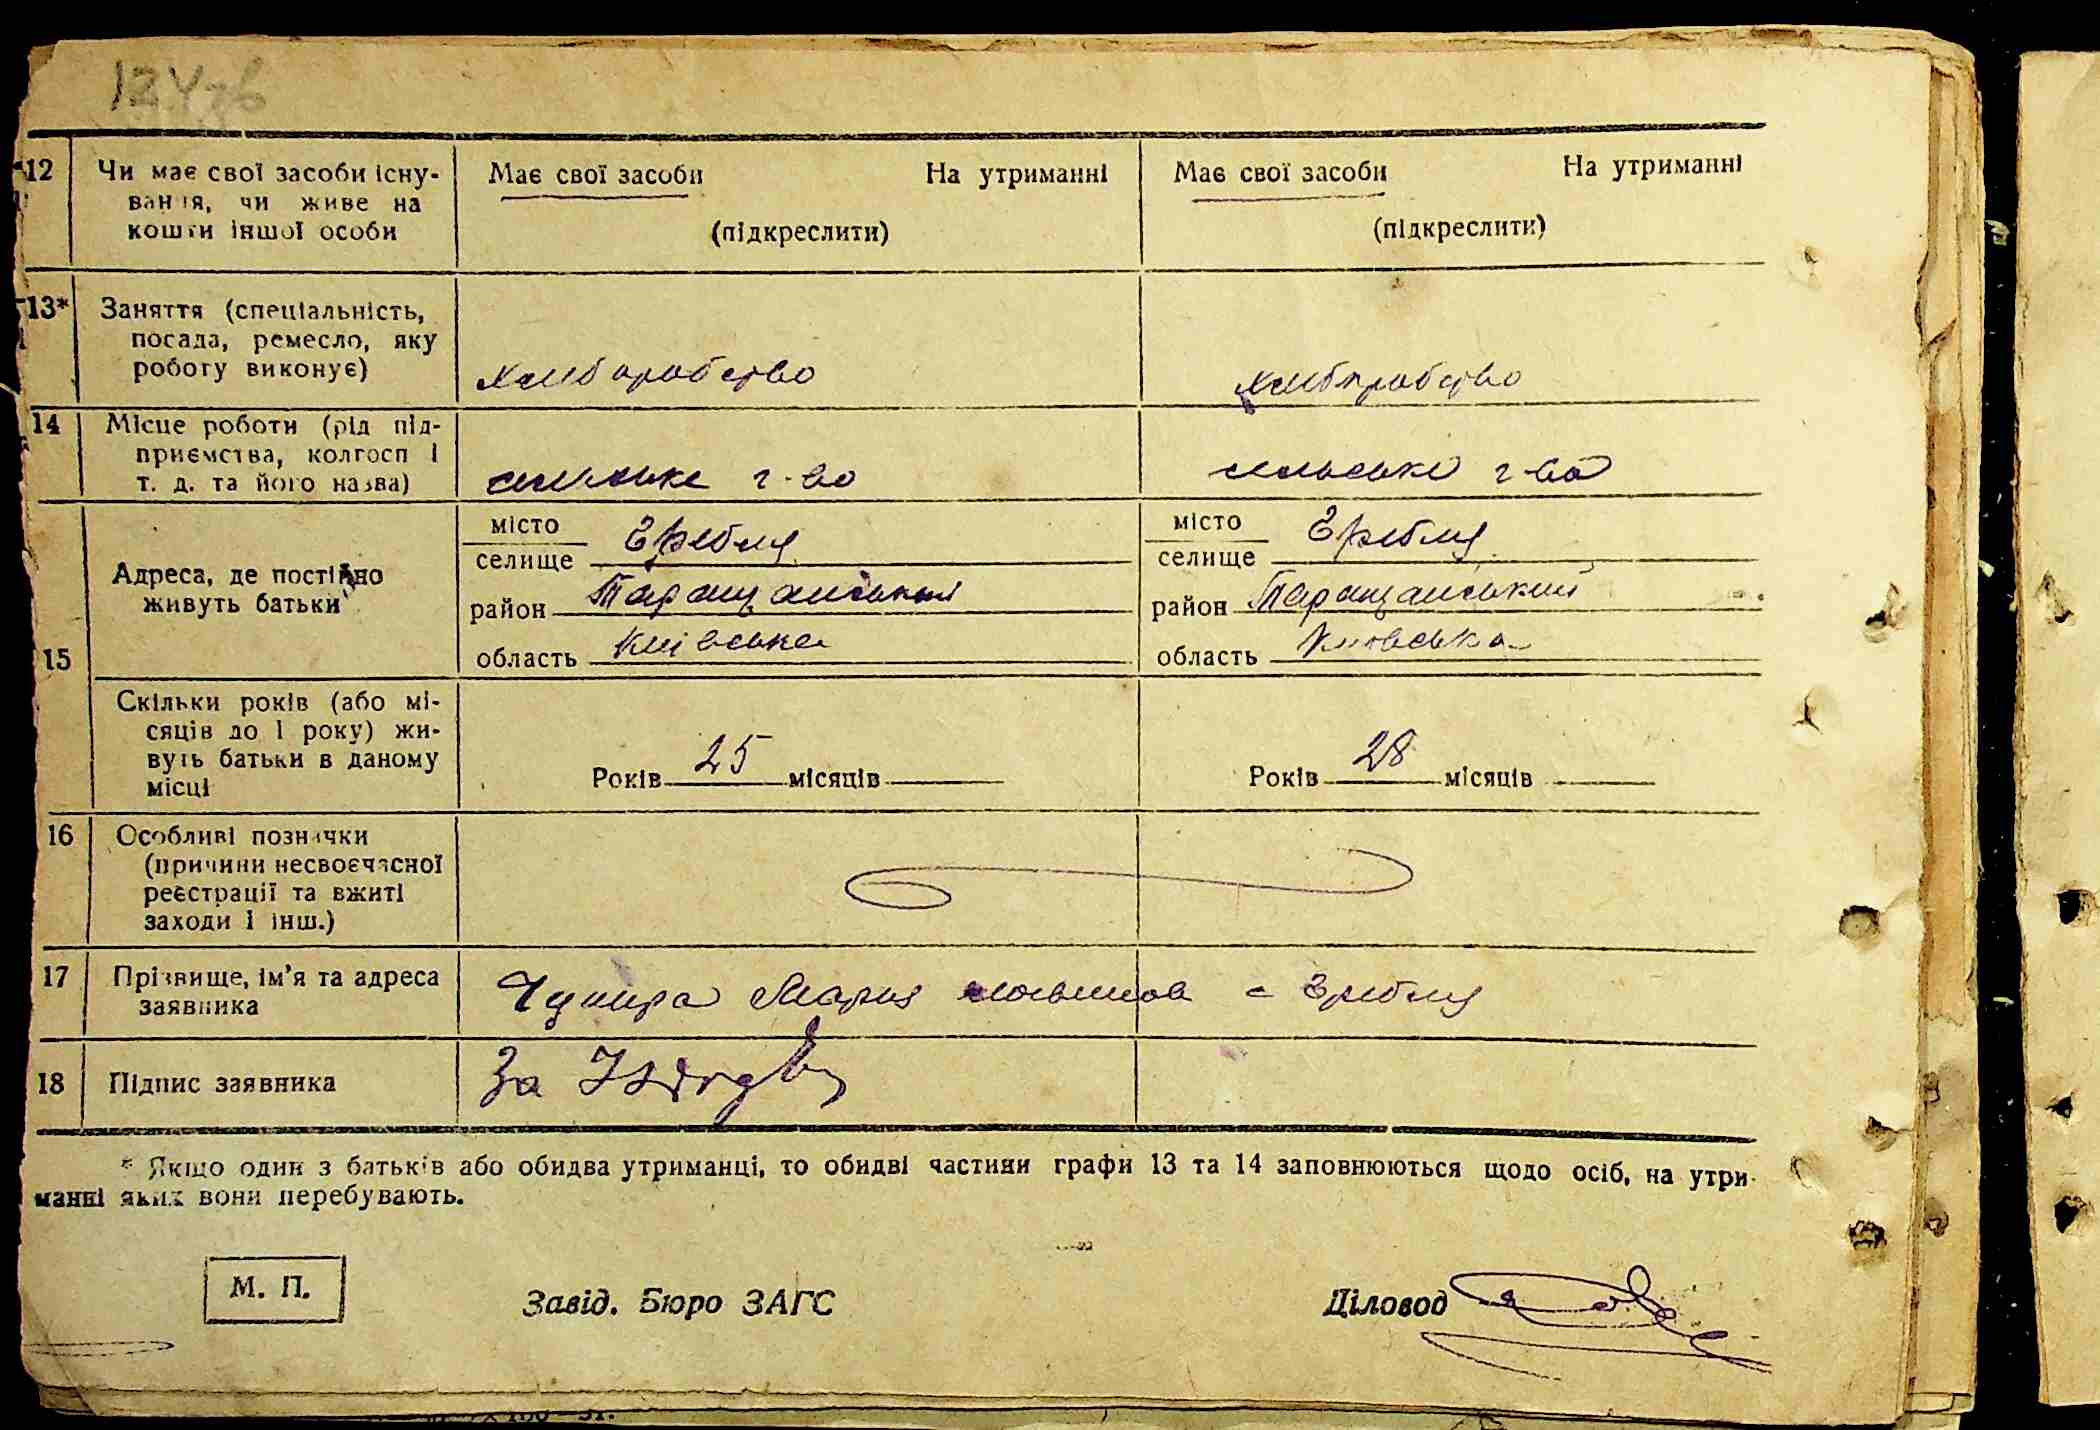 124зв
12 Чи має свої засоби існу- Має свої засоби На утриманні Має свої засоби На утриманні
вання, чи живе на
кошти іншої особи (підкреслити) (підкреслити)
13* Заняття (спеціальність,
посада, ремесло, яку
роботу виконує) хліборобство хліборобство
14 Місце роботи (рід під-
приємства, колгосп і
т. д. та його назва) сельське г-во сельське г-во
15 Адреса, де постійно
живуть батьки
місто
селище Гребля
район Таращанський
область Київська
місто
селище Гребля
район Таращанський
область Київська
Скільки років (або мі-
сяців до 1 року) жи-
вуть батьки в даному
місці
Років 25 місяців
Років 28 місяців
16 Особливі позначки
(причини несвоєчасної
реєстрації та вжиті
заходи і інш.)
17 Прізвище, ім'я та адреса
заявника
Мария с Гребля
18 Підпис заявника За
* Якщо один з батьків або обидва утриманці, то обидві частини графи 13 та 14 заповнюються щодо осіб, на утри-
манні яких вони перебувають.
М. П. Завід. Бюро ЗАГС Діловод